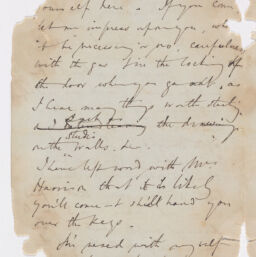 yourself here. If you come
let me impress upon you, whe
it be necessary or no, carefulness
with the gas & in the locking of
the door when you go out, as
I have many things worth stealing
such as studies the drawings
on the walls. &c.
I have left word with Mrs
Harrison that it is likely
you'll come & she'll hand you
over the keys.
I'm vexed with myself